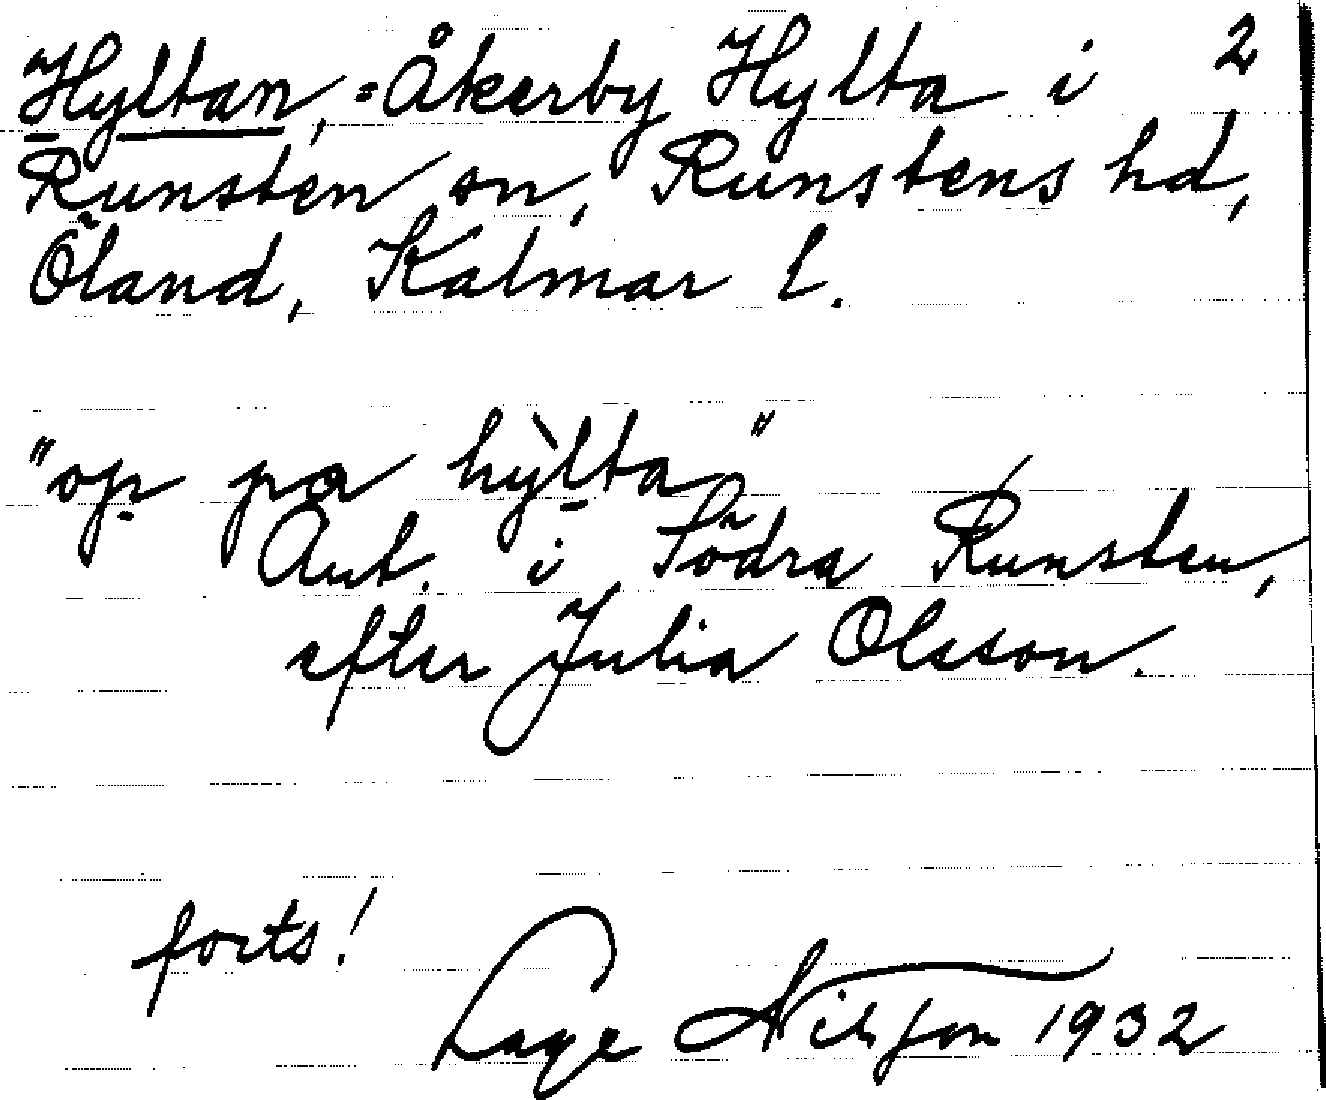 Hyltan, = Åkerby Hylta i 2
Runsten sn, Runstens hd,
Öland, Kalmar l.
"op pa hỳlta"
Ant. i Södra Runsten,
efter Julia Olsson.
forts!
Lage Nilsson 1932